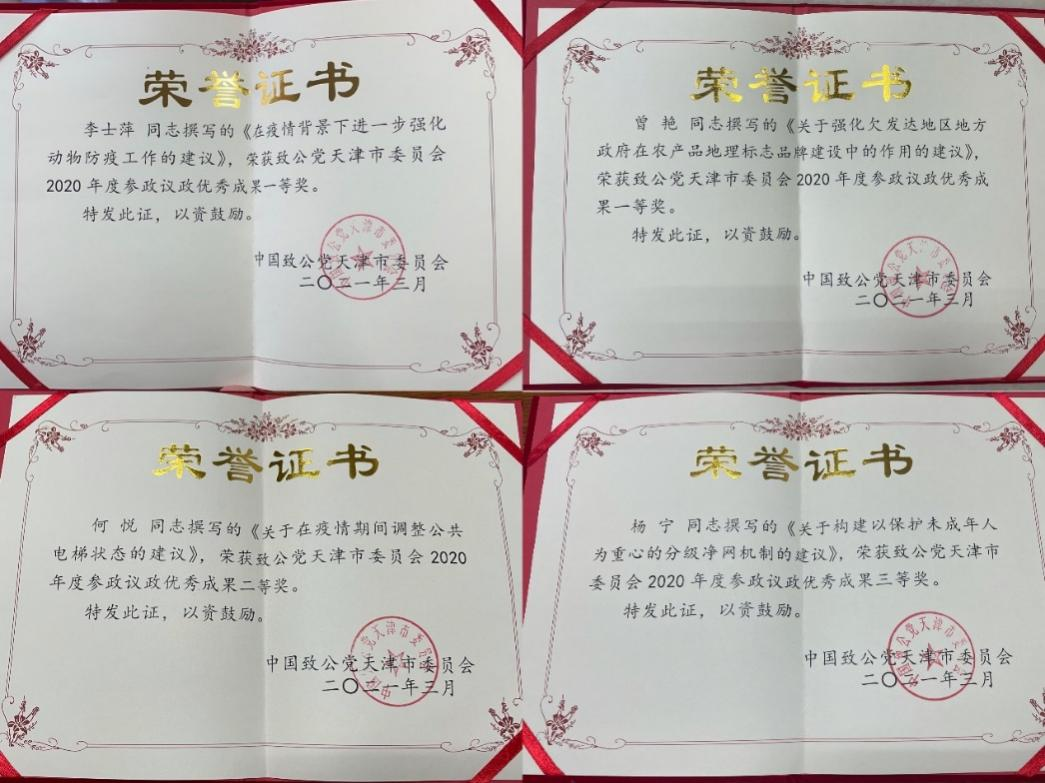 荣誉证书
李士萍 同志撰写的《在疫情背景下进一步强化
动物防疫工作的建议》，荣获致公党天津市委员会
2020 年度参政议政优秀成果一等奖。
特发此证，以资鼓励。
中国致公党天津市委员会
二〇二一年三月
荣誉证书
曾 艳 同志撰写的《关于强化欠发达地区地方
政府在农产品地理标志品牌建设中的作用的建议》，
荣获致公党天津市委员会 2020 年度参政议政优秀成
果一等奖。
特发此证，以资鼓励。
中国致公党天津市委员会
二〇二一年三月
荣誉证书
何 悦 同志撰写的《关于在疫情期间调整公共
电梯状态的建议》，荣获致公党天津市委员会 2020
年度参政议政优秀成果二等奖。
特发此证，以资鼓励。
中国致公党天津市委员会
二〇二一年三月
荣誉证书
杨 宁 同志撰写的《关于构建以保护未成年人
为重心的分级净网机制的建议》，荣获致公党天津市
委员会 2020 年度参政议政优秀成果三等奖。
特发此证，以资鼓励。
中国致公党天津市委员会
二〇二一年三月